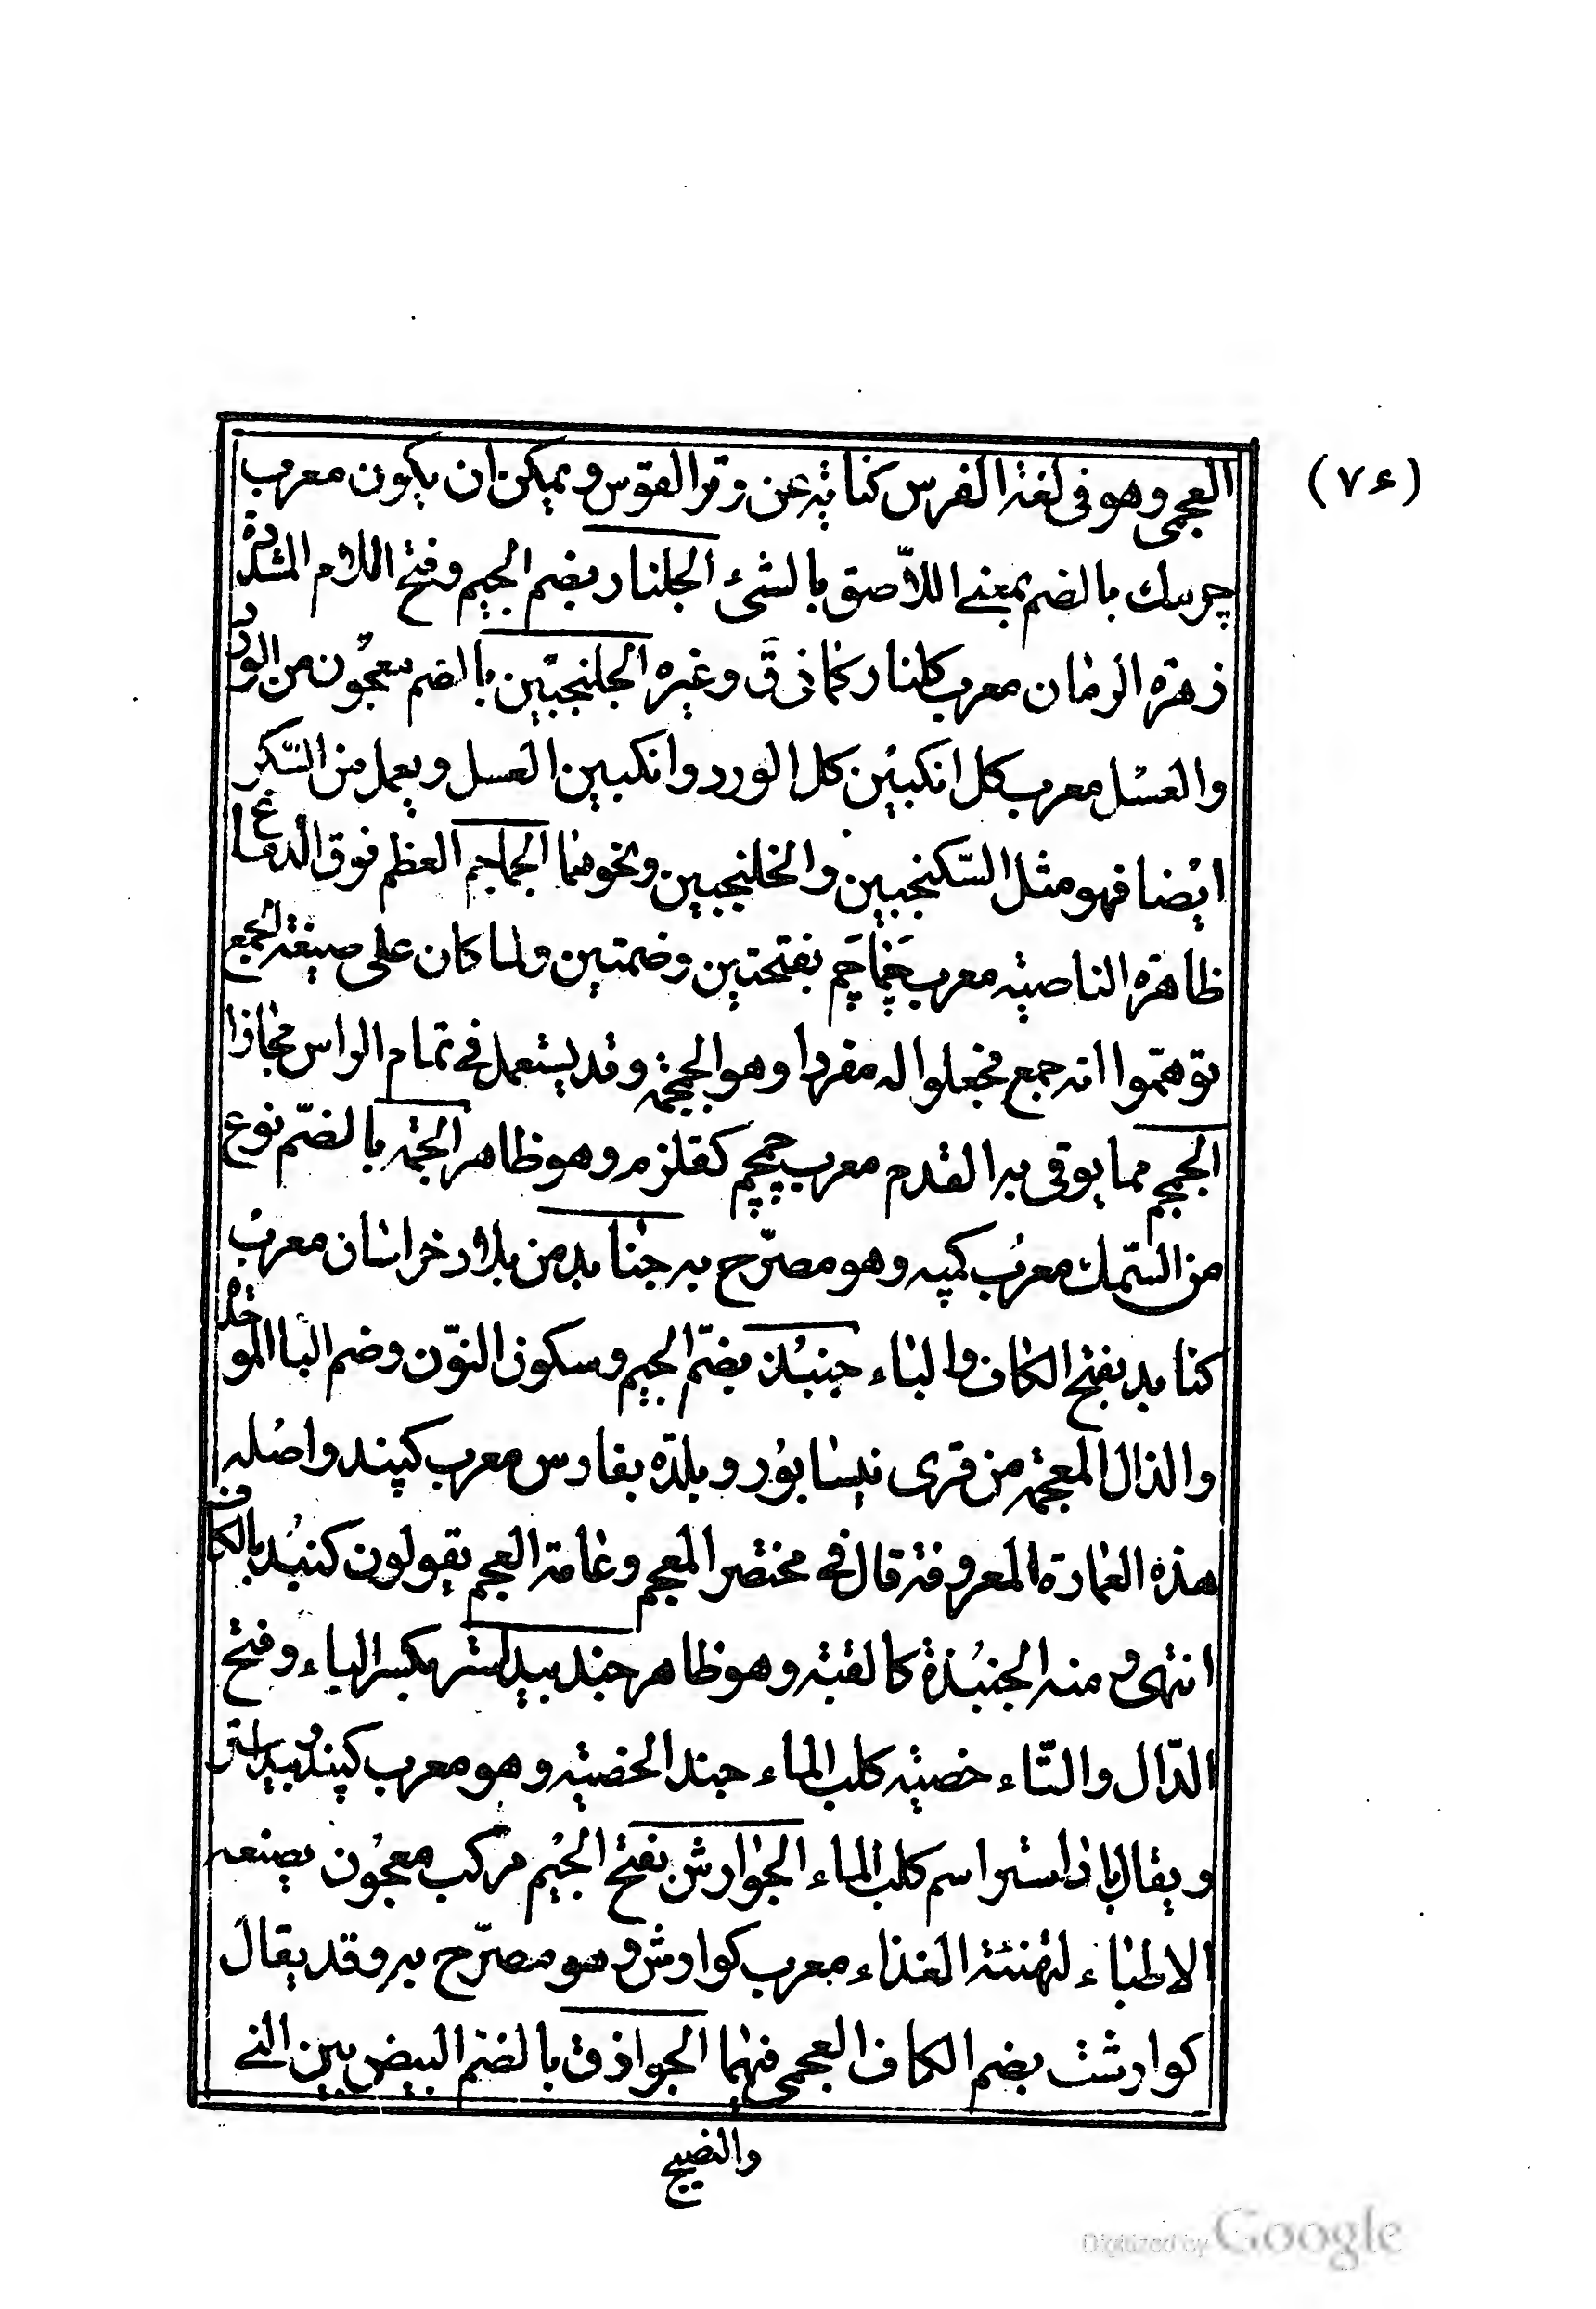 (٧٤)
العجمى وهو فى لغة الفرس كناية عن وتر القوس ويمكن ان يكون معرب
چوسك بالضم بمعنى اللاّصق بالشئ الجلنار بضم الجيم وفتح اللام المشددة
زهرة الرمان معرب كلنار كما فى ق وغيره الجلنجبين بالضم معجون من الورد
والعسل معرب كل انكبين كل الورد وانكبين العسل ويعمل من السّكر
ايضا فهو مثل السّكنجبين والخلنجبين ونحوهما الجماجم العظم فوق الدماغ
ظاهرة الناصية معرب چَماچَم بفتحتين وضمتين ولما كان على صيغة الجمع
توهّموا انه جمع فجعلوا له مفردا وهو الجمجمة وقد يستعمل فى تمام الراس مجازا
الجمجم مما يوقى به القدم معرب چمچم كقلزم وهو ظاهر الجمة بالضّم نوع
من السّمك معرب كمپه وهو مصرّح به جنابد من بلاد خراسان معرب
كنابد بفتح الكاف والباء جنبُذ بضمّ الجيم وسكون النّون وضم البا الموحدة
والذال المعجمة من قرى نيسابور وبلدة بفارس معرب كپند واصله
هذه العمارة المعروفة قال فى مختصر المعجم وعامة العجم يقولون كنبُد بالكاف
انتهى ومنه الجنبُذة كالقبة وهو ظاهر جند بيدستر بكسر الباء وفتح
الدّال والتّاء خصية كلب الماء جند الخصية وهو معرب كپند وبيداستر
ويقال باذاستر اسم كلب الماء الجوارش بفتح الجيم مركب معجون يصنعه
الاطباء لتهنئة الغذاء معرب كوارش وهو مصرّح به وقد يقال
كوارشت بضم الكاف العجمى فيهما الجواذق بالضم البيض بين النى
والنضيج
Digitized by Google